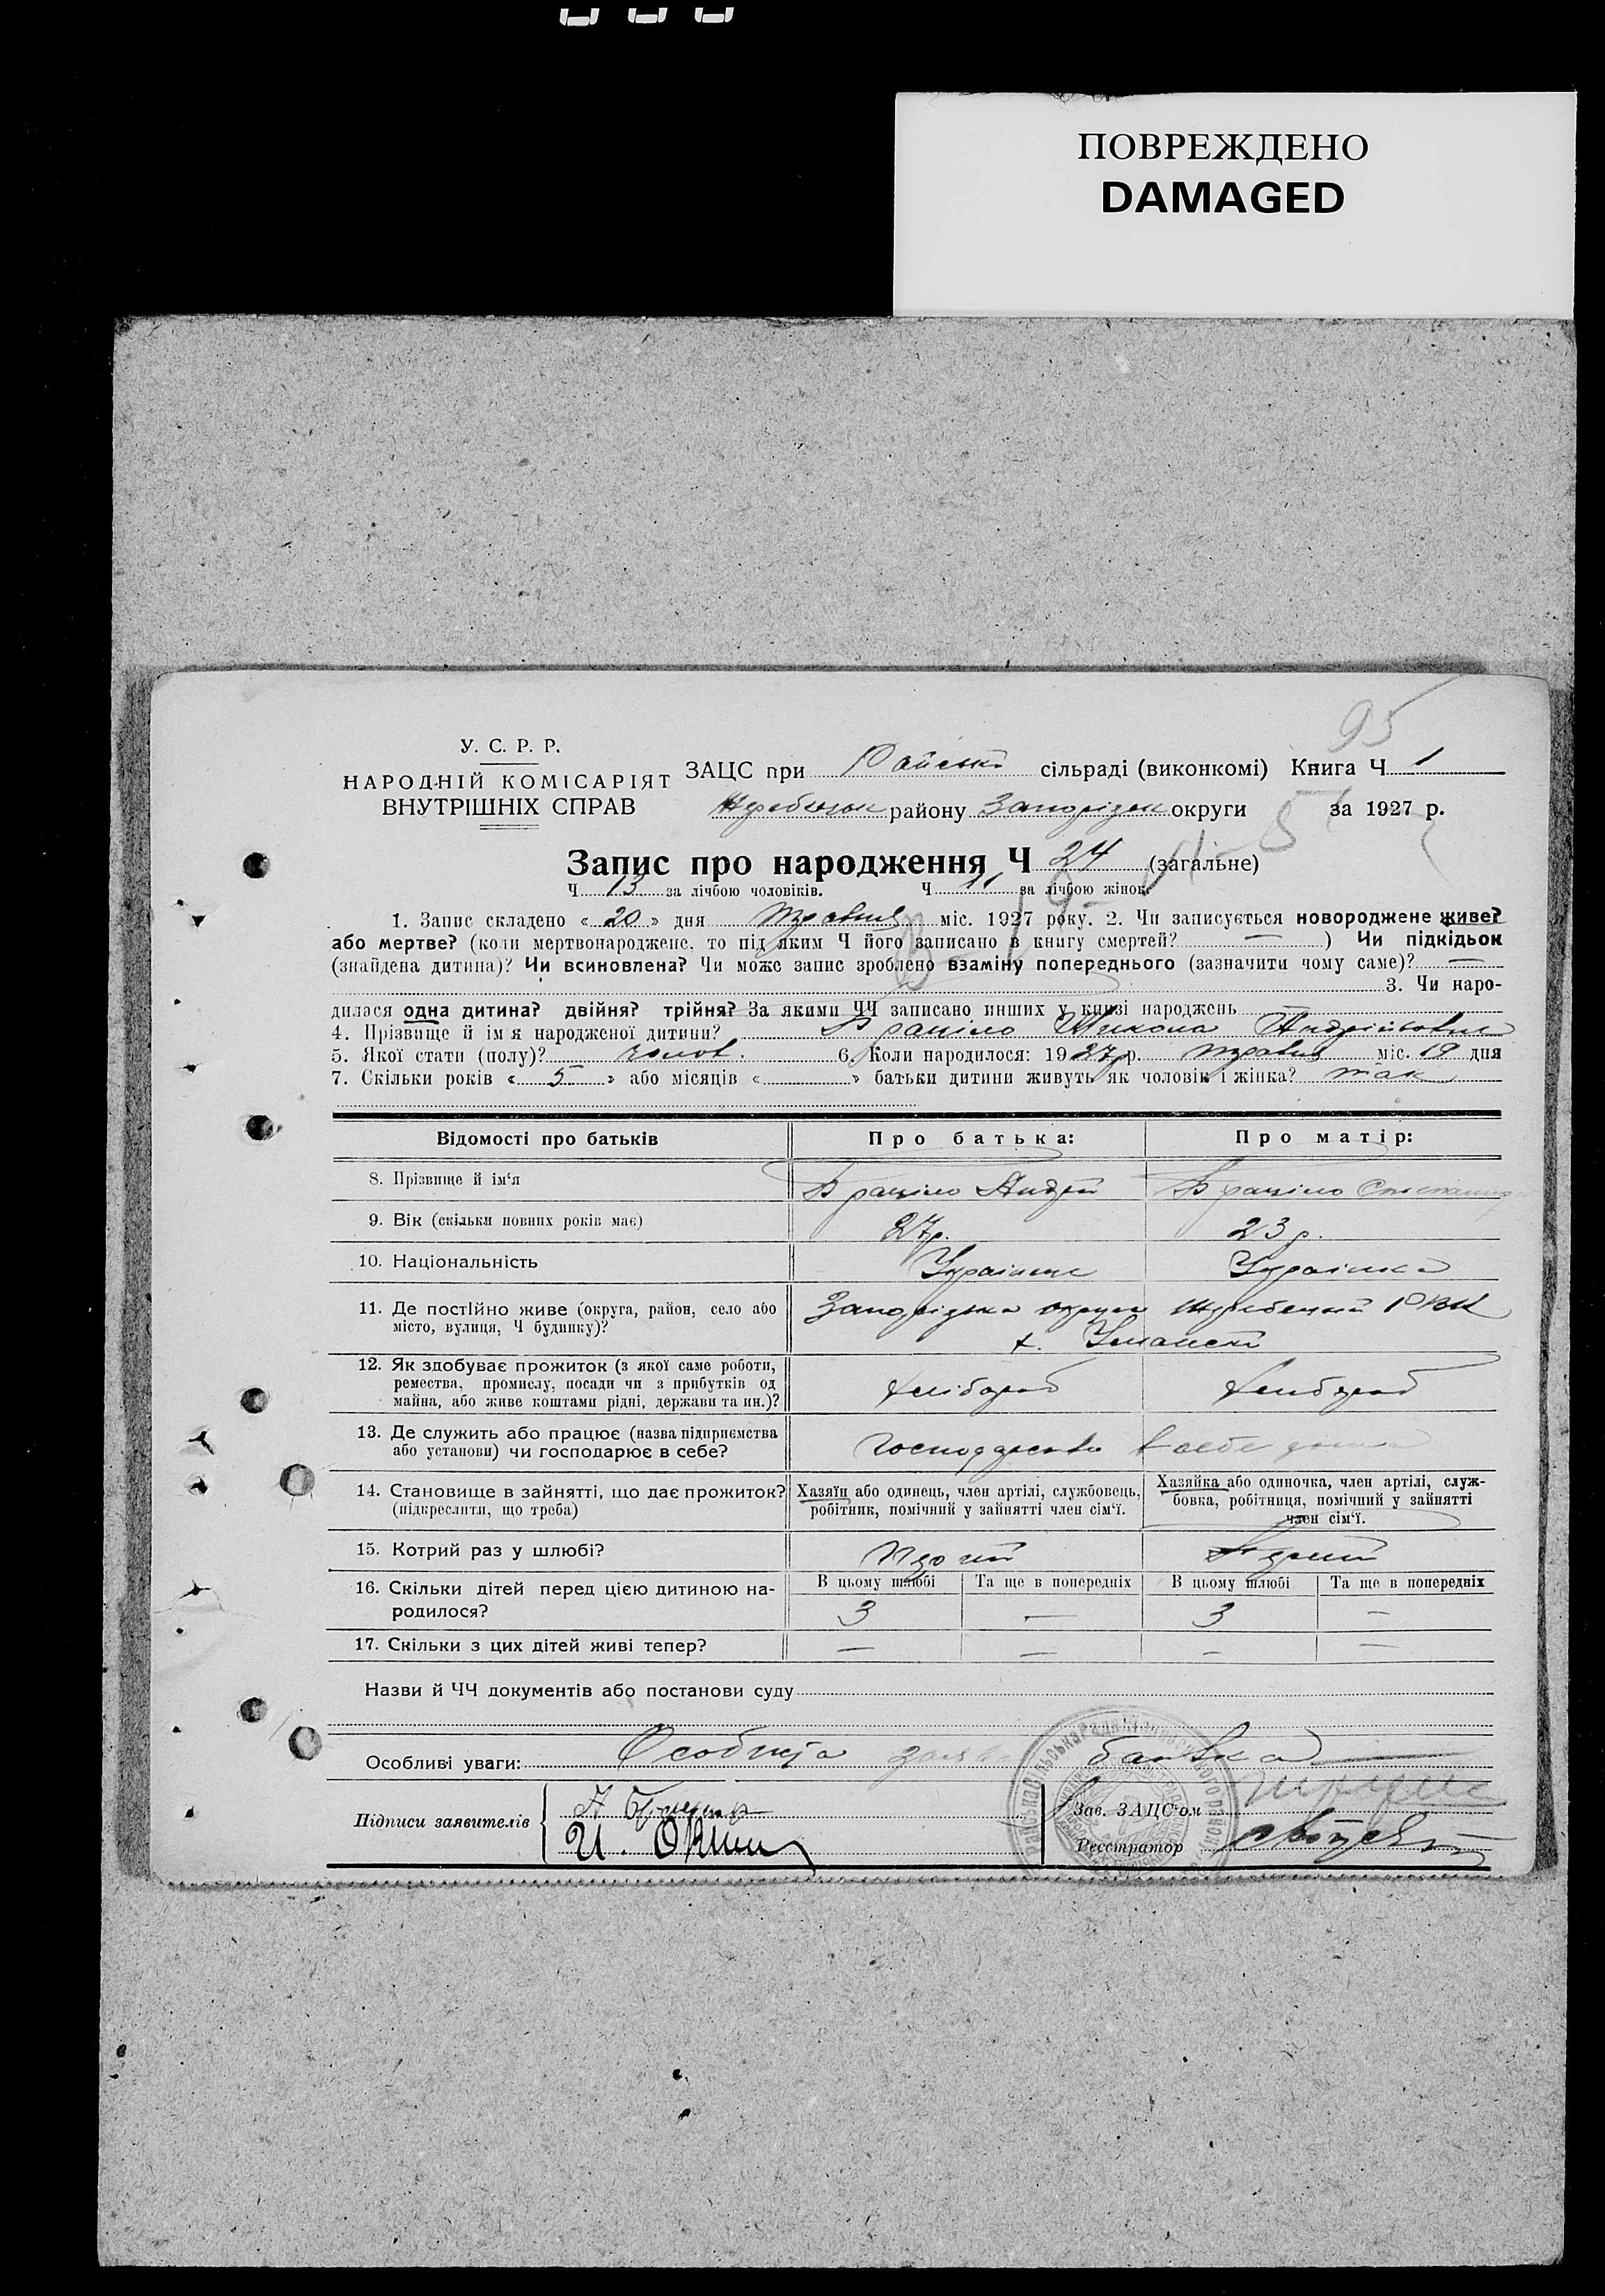 ПОВРЕЖДЕНО
DAMAGED
95
У. С. Р. Р.
НАРОДНІЙ КОМІСАРІЯТ
ВНУТРІШНІХ СПРАВ
ЗАЦС при Райській сільраді (виконкомі) Книга Ч 1
району Запорізьк округи за 1927 р.
Запис про народження Ч 24 (загальне)
Ч 13 за лічбою чоловіків. Ч 11 за лічбою жінок.
1. Запис складено « 20 » дня травня міс. 1927 року. 2. Чи записується новороджене живе?
або мертве? (коли мертвонароджене, то під яким Ч його записано в книгу смертей? — ) Чи підкідьок
(знайдена дитина)? Чи всиновлена? Чи може запис зроблено взаміну попереднього (зазначити чому саме)? —
3. Чи наро-
дилася одна дитина? двійня? трійня? За якими ЧЧ записано инших у книзі народжень
4. Прізвище й ім'я народженої дитини? Браціло Микола Андрійович
5. Якої стати (полу)? чолов. 6. Коли народилося: 1927 р. травня міс. 19 дня
7. Скільки років « 5 » або місяців « » батьки дитини живуть як чоловік і жінка? так
Відомості про батьків Про батька: Про матір:
8. Прізвище й ім'я Браціло Андрій Браціло
9. Вік (скільки повних років має) 27 р. 23 р.
10. Національність Українець Українка
11. Де постійно живе (округа, район, село або Запорізька округа РВК
місто, вулиця, Ч будинку)? х.
12. Як здобуває прожиток (з якої саме роботи,
ремества, промислу, посади чи з прибутків од хлібороб хлібороб
майна, або живе коштами рідні, держави та ин.)?
13. Де служить або працює (назва підприємства
або установи) чи господарює в себе? в себе дома
14. Становище в зайнятті, що дає прожиток? Хазяїн або одинець, член артілі, службовець, Хазяйка або одиночка, член артілі, служ-
(підкреслити, що треба) робітник, помічний у зайнятті член сім'ї. бовка, робітниця, помічний у зайнятті
член сім'ї.
15. Котрий раз у шлюбі?
16. Скільки дітей перед цією дитиною на- В цьому шлюбі Та ще в попередніх В цьому шлюбі Та ще в попередніх
родилося? 3 — 3 —
17. Скільки з цих дітей живі тепер? — — — —
Назви й ЧЧ документів або постанови суду
Особливі уваги: Особиста заява батька
Підписи заявителів Зав. ЗАЦС'ом
Реєстратор